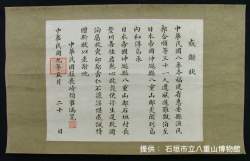 感謝狀
中華民國八年冬福建省惠安縣漁民
郭合順等三十一人遭風遇難飄泊至
日本帝國沖繩縣八重山郡尖閣列島
內和洋島承
日本帝國沖繩縣八重山郡石垣村
善佐君熱心救護使得生還故國
洵屬救災恤鄰當仁不讓深堪感佩特
贈斯狀以表謝忱
中華民國駐長崎領事馮冕
中華民國九年五月二十日
提供：石垣市立八重山博物館